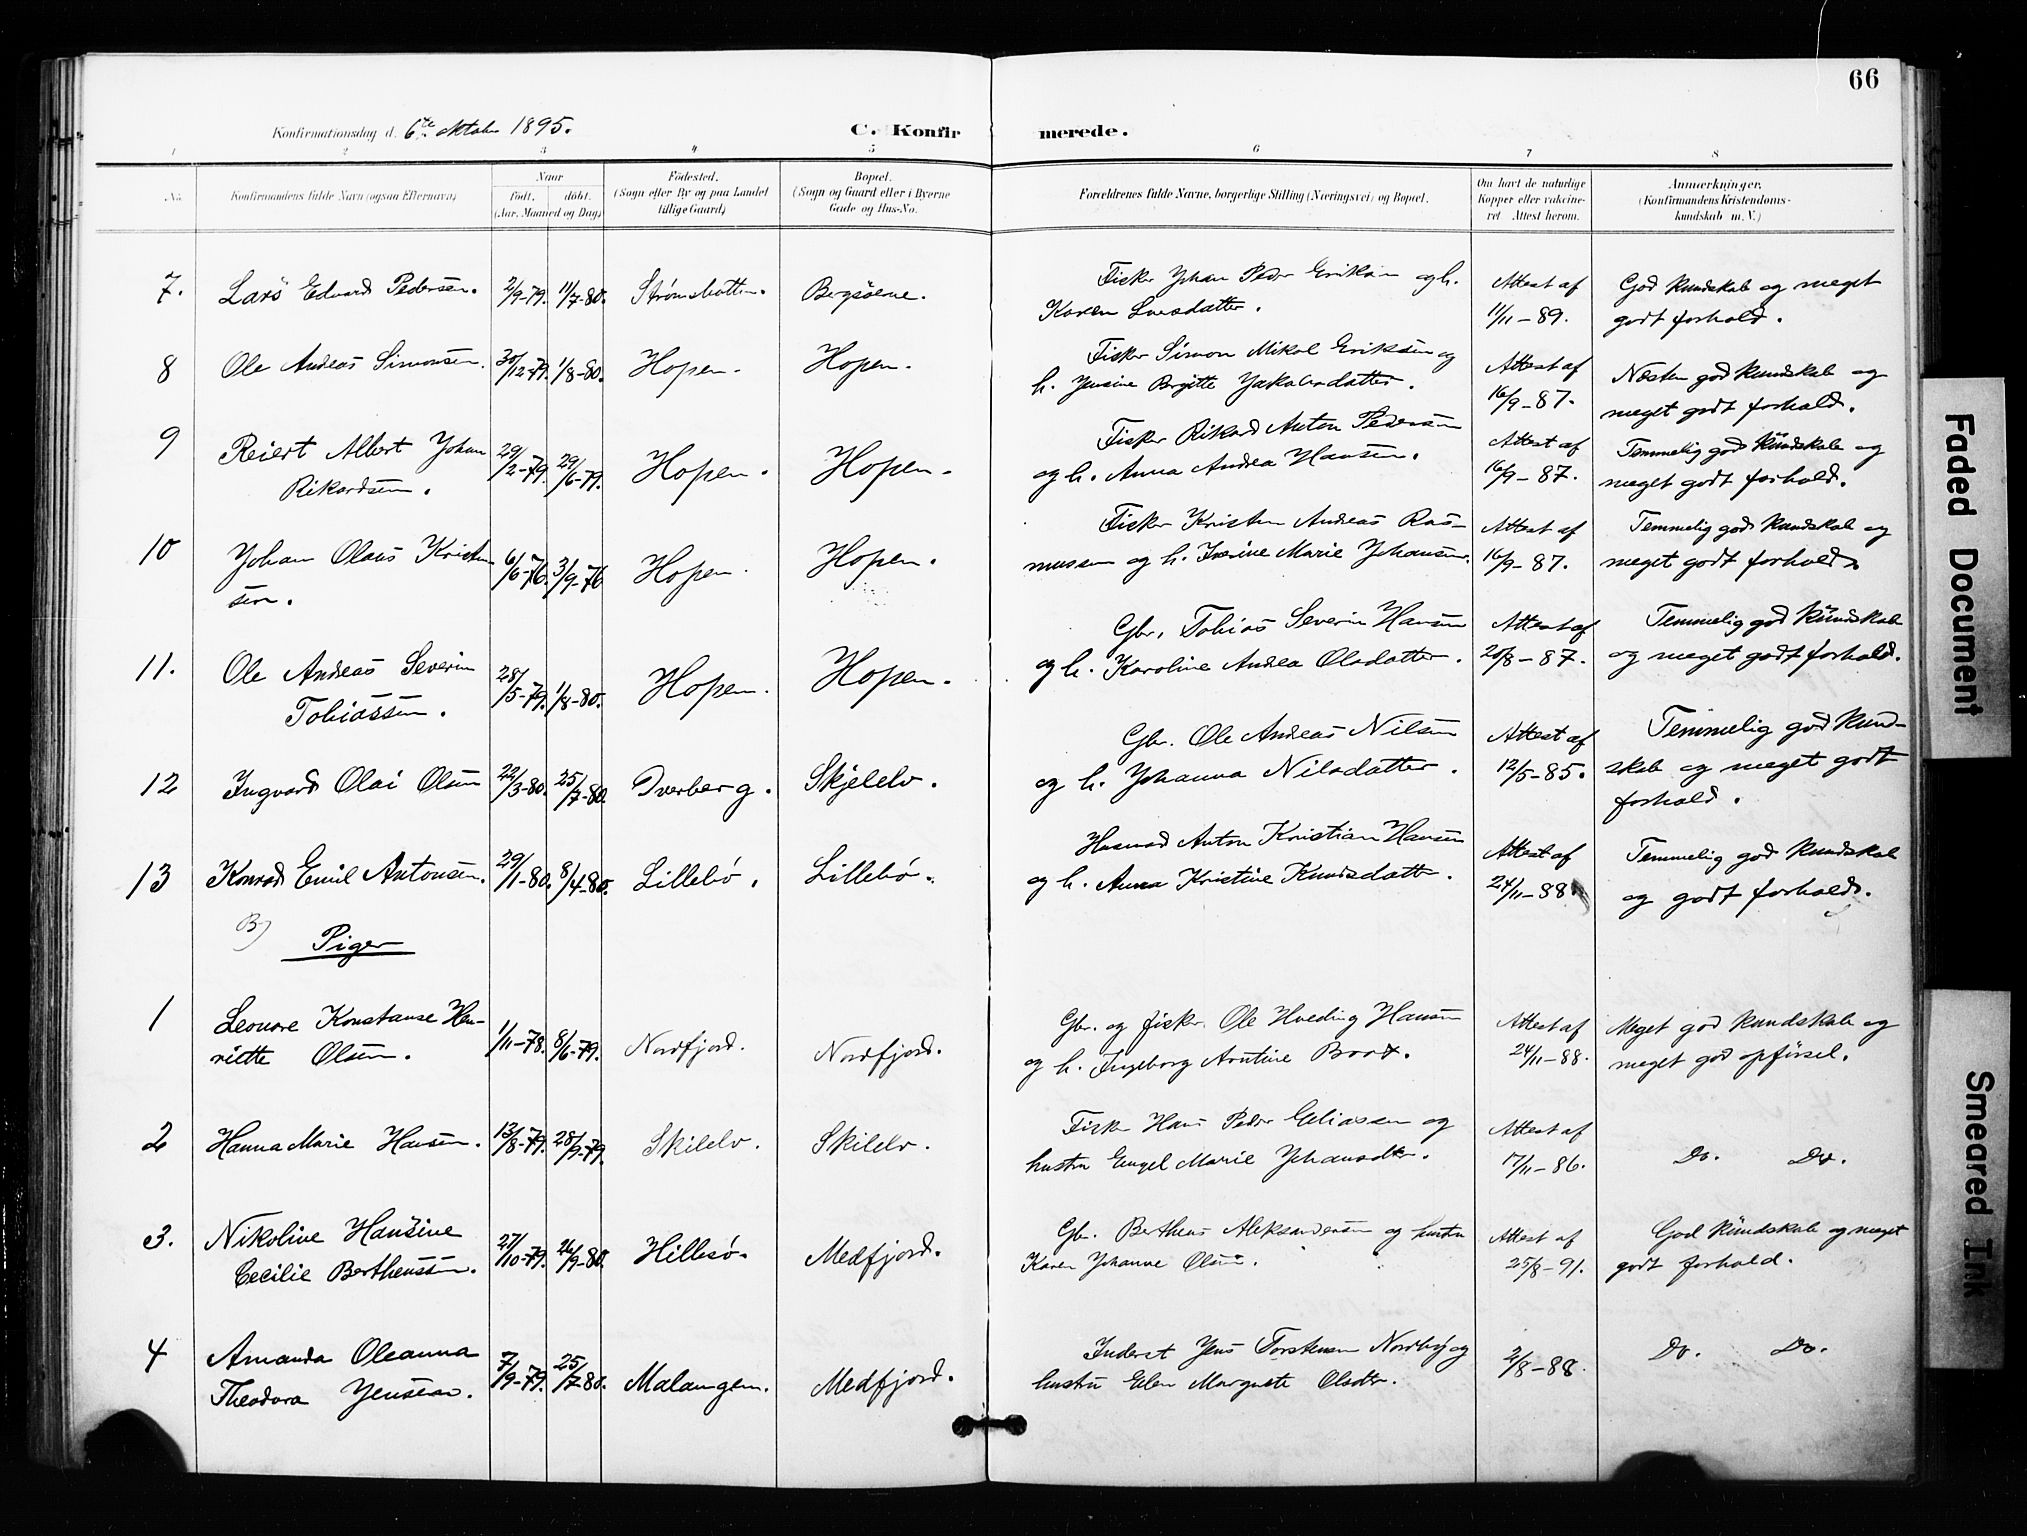 66
Konfirmationsdag d. 6te Oktober 1895.
C. Konfir merede.
1 2 3 4 5 6 7 8
No. Konfirmandens fulde Navn (ogsaa Efternavn) Naar födt. döbt. (Aar, Maaned og Dag) Födested. (Sogn eller By og paa Landet tillige Gaard) Bopæl. (Sogn og Gaard eller i Byerne Gade og Hus-No. Forældrenes fulde Navne, borgerlige Stilling (Næringsvei) og Bopæl. Om havt de naturlige Kopper eller vakcineret Attest herom. Anmærkninger. (Konfirmandens Kristendomskundskab m. V.)
7. Lars Edvard Pedersen. 2/9-79. 11/7-80. Strømsbotten. Bergsöerne. Fisker Johan Peder Eriksen og h. Attest af God kundskab og meget
Karen Larsdatter. 11/11-89. godt forhold.
8 Ole Andreas Simonsen. 30/12-79. 1/8-80. Hopen. Hopen. Fisker Simon Mikal Eriksen og Attest af Næsten god kundskab og
h. Jensine Birgitte Jakobsdatter. 16/9-87. meget godt forhold.
9 Reiert Albert Johan 29/2-79. 29/6-79. Hopen. Hopen. Fisker Rikard Anton Pedersen Attest af Temmelig god kundskab og
Rikardsen. og h. Anna Andrea Hansen. 16/9-87. meget godt forhold.
10 Johan Olaus Kristen 6/6-76. 3/9-76 Hopen. Hopen. Fisker Kristen Andreas Ras- Attest af Temmelig god kundskab og
sen. mussen og h. Marie Johansen. 16/9-87. meget godt forhold.
11. Ole Andreas Severin 28/5-79. 1/8-80. Hopen. Hopen. Gbr. Tobias Severin Hansen Attest af Temmelig god kundskab
Tobiassen. og h. Karoline Andrea Olsdatter. 20/8-87. og meget godt forhold.
12 Ingvard Olai Olsen 22/3-80. 25/7-80. Dverberg. Skjelelv. Gbr. Ole Andreas Nilsen Attest af Temmelig god kund-
og h. Johanna Nilsdatter. 12/5-85. skab og meget godt
forhold.
13 Konrad Emil Antonsen. 29/1-80. 8/4-80. Lillebö. Lillebö. Husmd Anton Kristian Hansen Attest af Temmelig god kundskab
og h. Anna Kristine Knudsdatter. 24/11-88. og godt forhold.
B)
Piger
1 Leonore Konstanse Hen- 1/11-78. 8/6-79. Nordfjord. Nordfjord. Gbr. og fisker Ole Hveding Hansen Attest af Meget god kundskab og
riette Olsen. og h. Ingeborg Arntine Boot. 24/11-88. meget god opförsel.
2 Hanna Marie Hansen. 13/8-79. 28/9-79. Skilelv. Skilelv. Fisker Hans Peder Eliassen og Attest af
hustru Engel Marie Johansdtr. 17/11-86. Do. Do.
3. Nikoline Hansine 27/10-79. 26/9-80. Hillesö. Medfjord. Gbr. Bertheus Aleksandersen og hustru Attest af God kundskab og meget
Cecilie Bertheussen. Karen Johanne Olsen. 25/8-91. godt forhold.
4 Amanda Oleanna 7/9-79. 25/7-80. Malangen. Medfjord. Inderst Jens Torstensen Nordby og 2/8-88. Do. Do.
Theodora Jensen. hustru Elen Margrete Olsdtr.
Faded Document
Smeared Ink